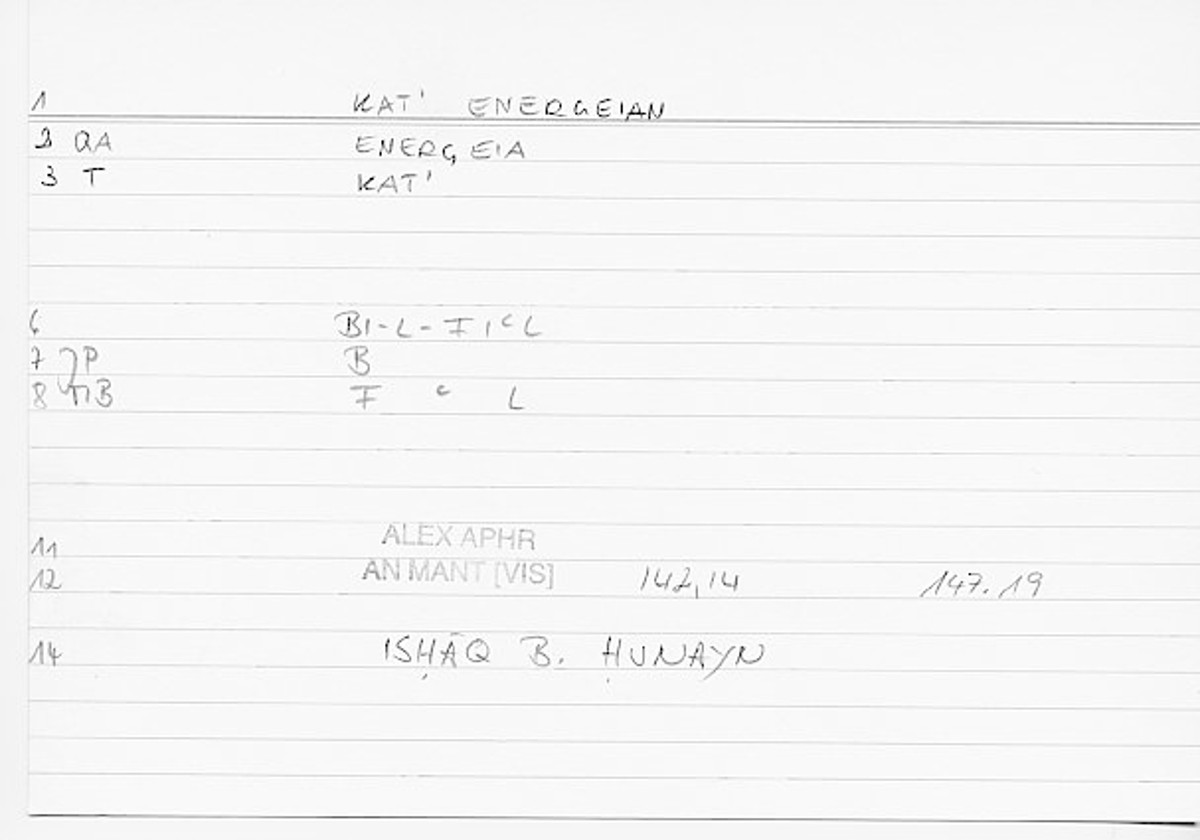 1 KAT' ENERGEIAN
2 QA ENERGEIA
3 T KAT'
6 BI-L-FIᶜL
7 JP B
8 NB F ᶜ L
11 ALEX APHR
12 AN MANT [VIS] 142,14 147.19
14 ISḤĀQ B. ḤUNAYN